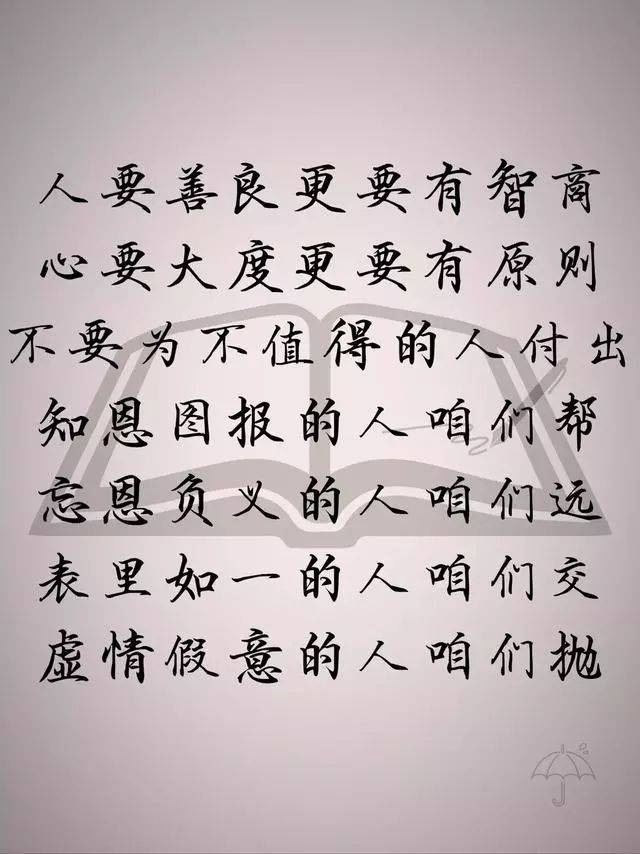 人要善良更要有智商
心要大度更要有原则
不要为不值得的人付出
知恩图报的人咱们帮
忘恩负义的人咱们远
表里如一的人咱们交
虚情假意的人咱们抛